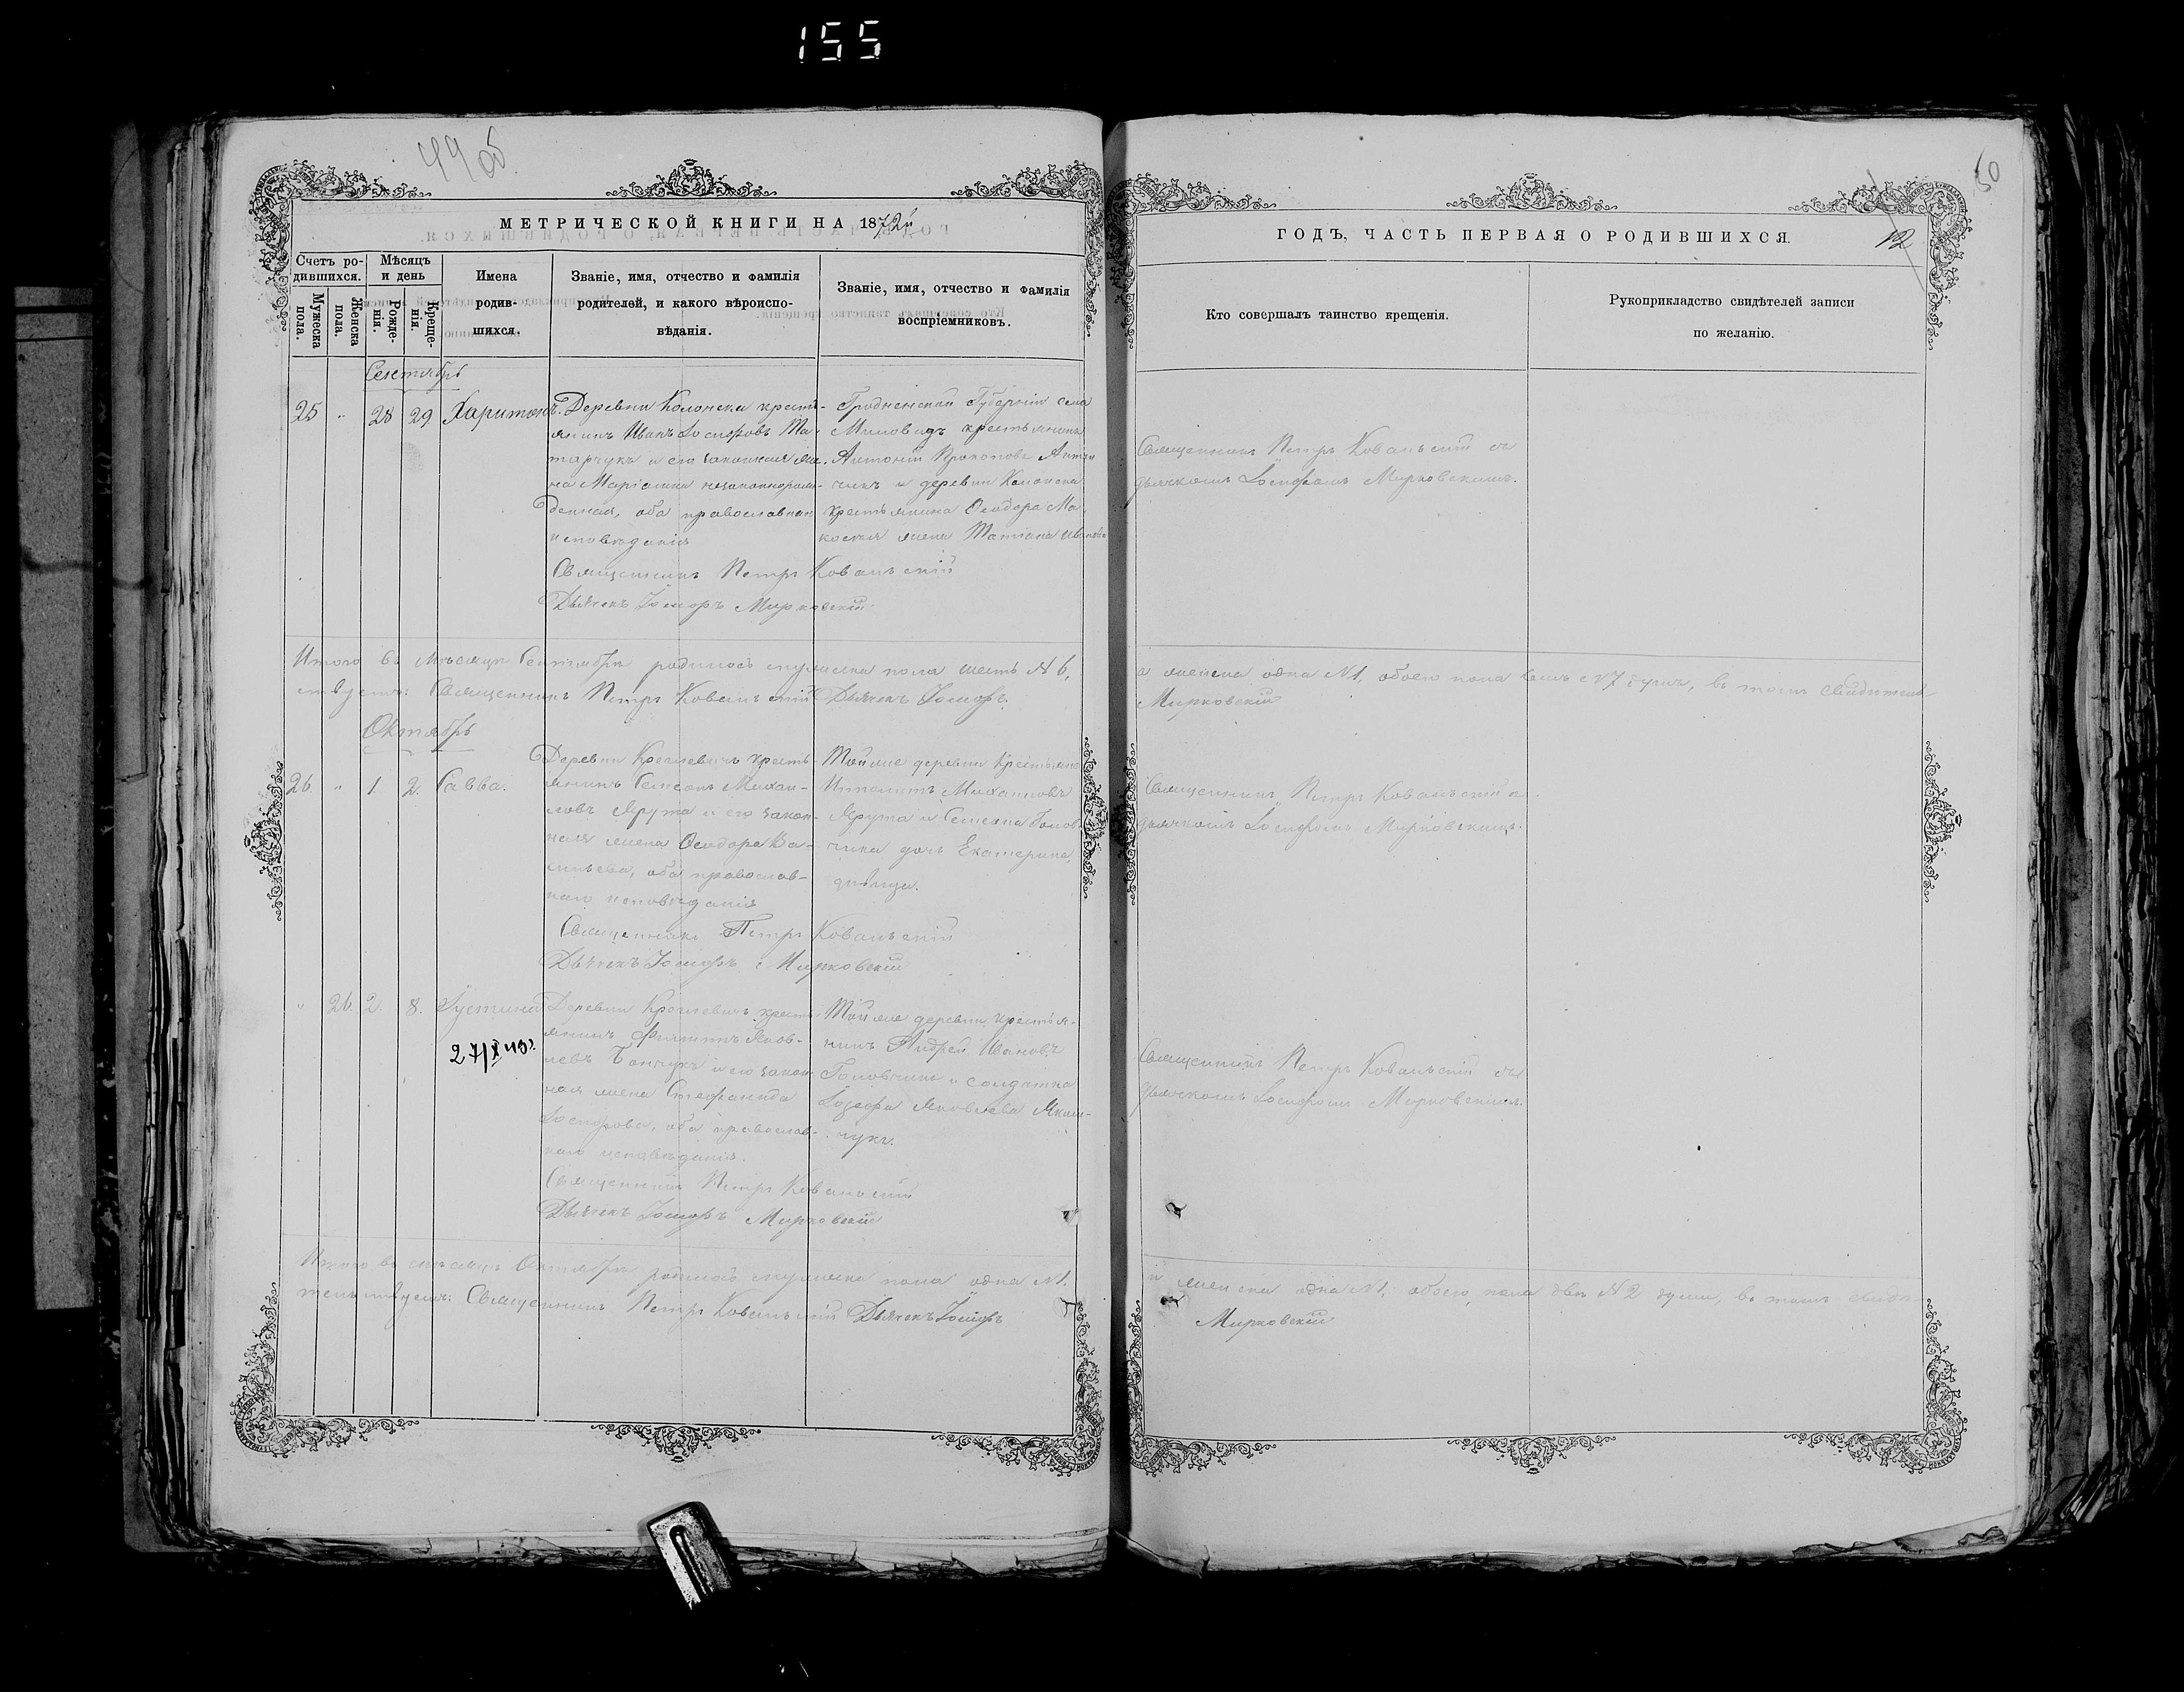 155
49 об.
50
МЕТРИЧЕСКОЙ КНИГИ НА 1872й
Счетъ родившихся.
Мужеска пола.
Женска пола.
Мѣсяцъ и день
Рожденія.
Крещенія.
Имена родившихся.
Званіе, имя, отчество и фамилія родителей, и какого вѣроисповѣданія.
Званіе, имя, отчество и фамилія воспріемниковъ.
ГОДЪ, ЧАСТЬ ПЕРВАЯ О РОДИВШИХСЯ.
12
Кто совершалъ таинство крещенія.
Рукоприкладство свидѣтелей записи по желанію.
Сентябрь
25 " 28 29 Харитонъ.
Деревни Колонска кресть-
янинъ Иванъ Іосифовъ
и его законная же-
на Маріанна незаконнорож-
денная, оба православнаго
исповѣданія
Священникъ Петръ Ковальскій
Дьячекъ Іосифъ Мирковскій
Гродненской Губерніи села
Миловидъ крестьянинъ
Антоній Прокоповъ
и деревни Колонска
крестьянина Ѳеодора
жена Татіана Иванова
Священникъ Петръ Ковальскій съ
дьячкомъ Іосифомъ Мирковскимъ.
Итого въ мѣсяцѣ Сентябрѣ родилось мужеска пола шесть №6,
а женска одна №1, обоего пола семь №7 душъ, въ томъ свидѣтель-
ствуемъ: Священникъ Петръ Ковальскій Дьячекъ Іосифъ
Мирковскій
Октябрь
26. " 1. 2. Савва.
Деревни кресть-
янинъ Семеонъ Михаи-
ловъ Ярута и его закон-
ная жена Ѳеодора Ва-
сильева, оба православ-
наго исповѣданія
Священникъ Петръ Ковальскій
Дьячекъ Іосифъ Мирковскій
Той же деревни крестьяне
Ипполитъ Михаиловъ
Ярута и Семеона Голов-
чика дочь Екатерина,
дѣвица.
Священникъ Петръ Ковальскій съ
дьячкомъ Іосифомъ Мирковскимъ.
" 26. 2. 8. Іустина
27/X
Деревни кресть-
янинъ Филиппъ Яков-
левъ и его закон-
ная жена Стефанида
Іосифова, оба православ-
наго исповѣданія.
Священникъ Петръ Ковальскій
Дьячекъ Іосифъ Мирковскій
Той же деревни крестья-
нинъ Андрей Ивановъ
и солдатка
Іозефа Яковлева Яким-
чукъ.
Священникъ Петръ Ковальскій съ
дьячкомъ Іосифомъ Мирковскимъ.
Итого въ мѣсяцѣ Октябрѣ родилось мужеска пола одна №1.
и женска одна №1, обоего пола двѣ №2 души, въ томъ свидѣ-
тельствуемъ: Священникъ Петръ Ковальскій Дьячекъ Іосифъ
Мирковскій